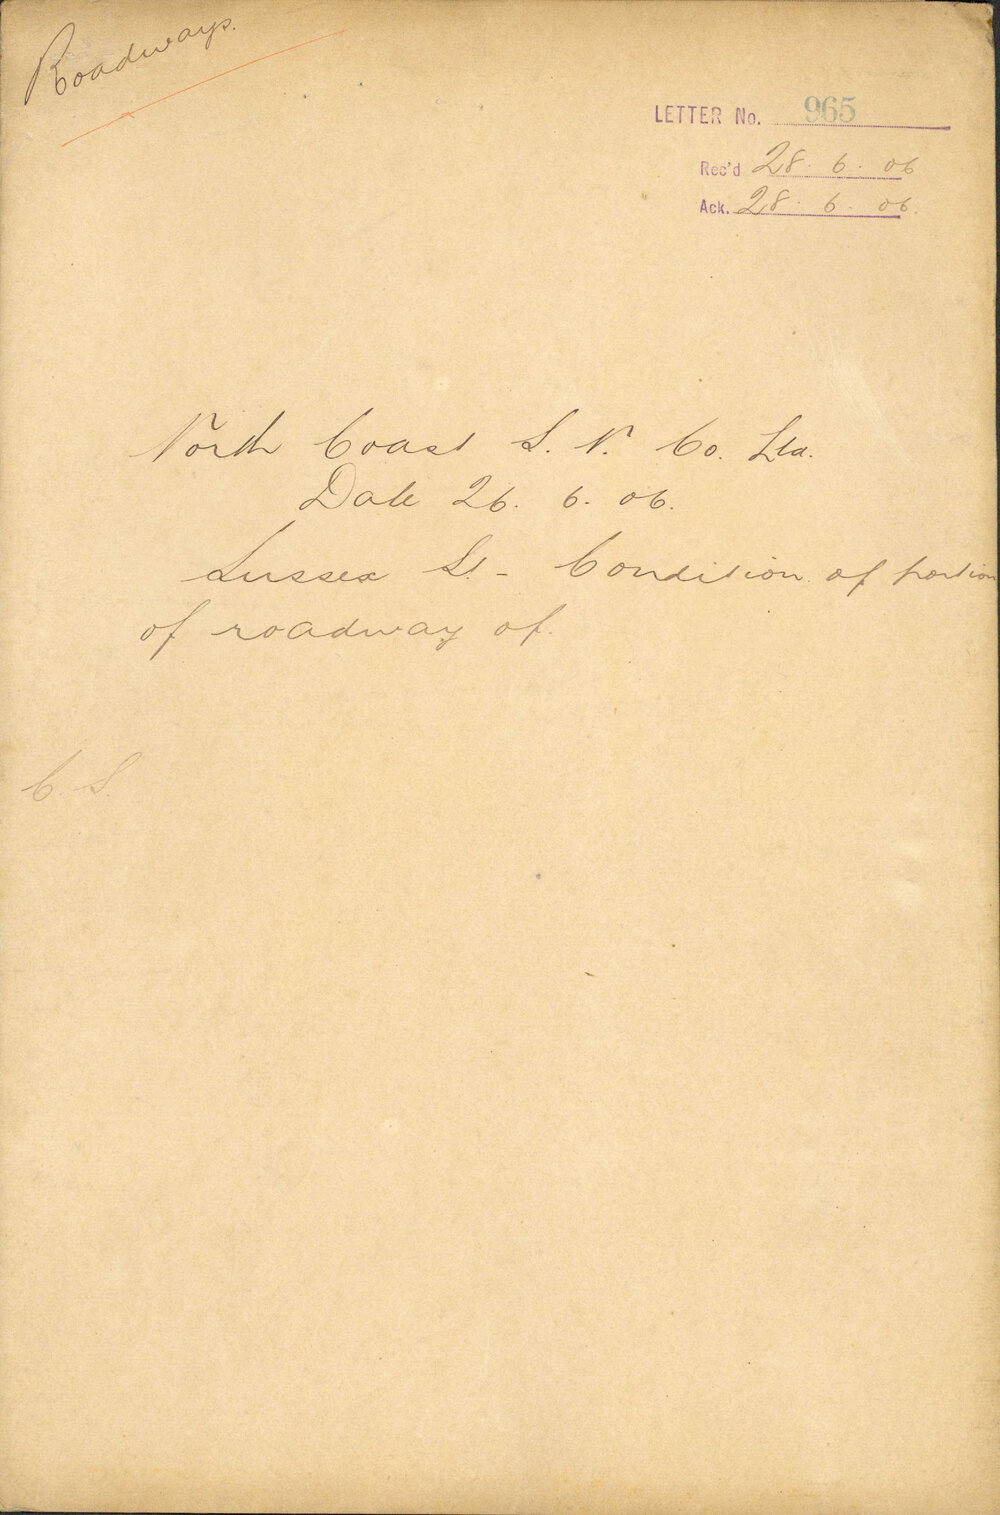 Roadways.
LETTER No. 965
Rec'd 28. 6. 06
Ack. 28. 6. 06.
North Coast S. N. Co. Ltd.
Date 26. 6. 06.
Sussex St - Condition of portion
of roadway of.
C. S.